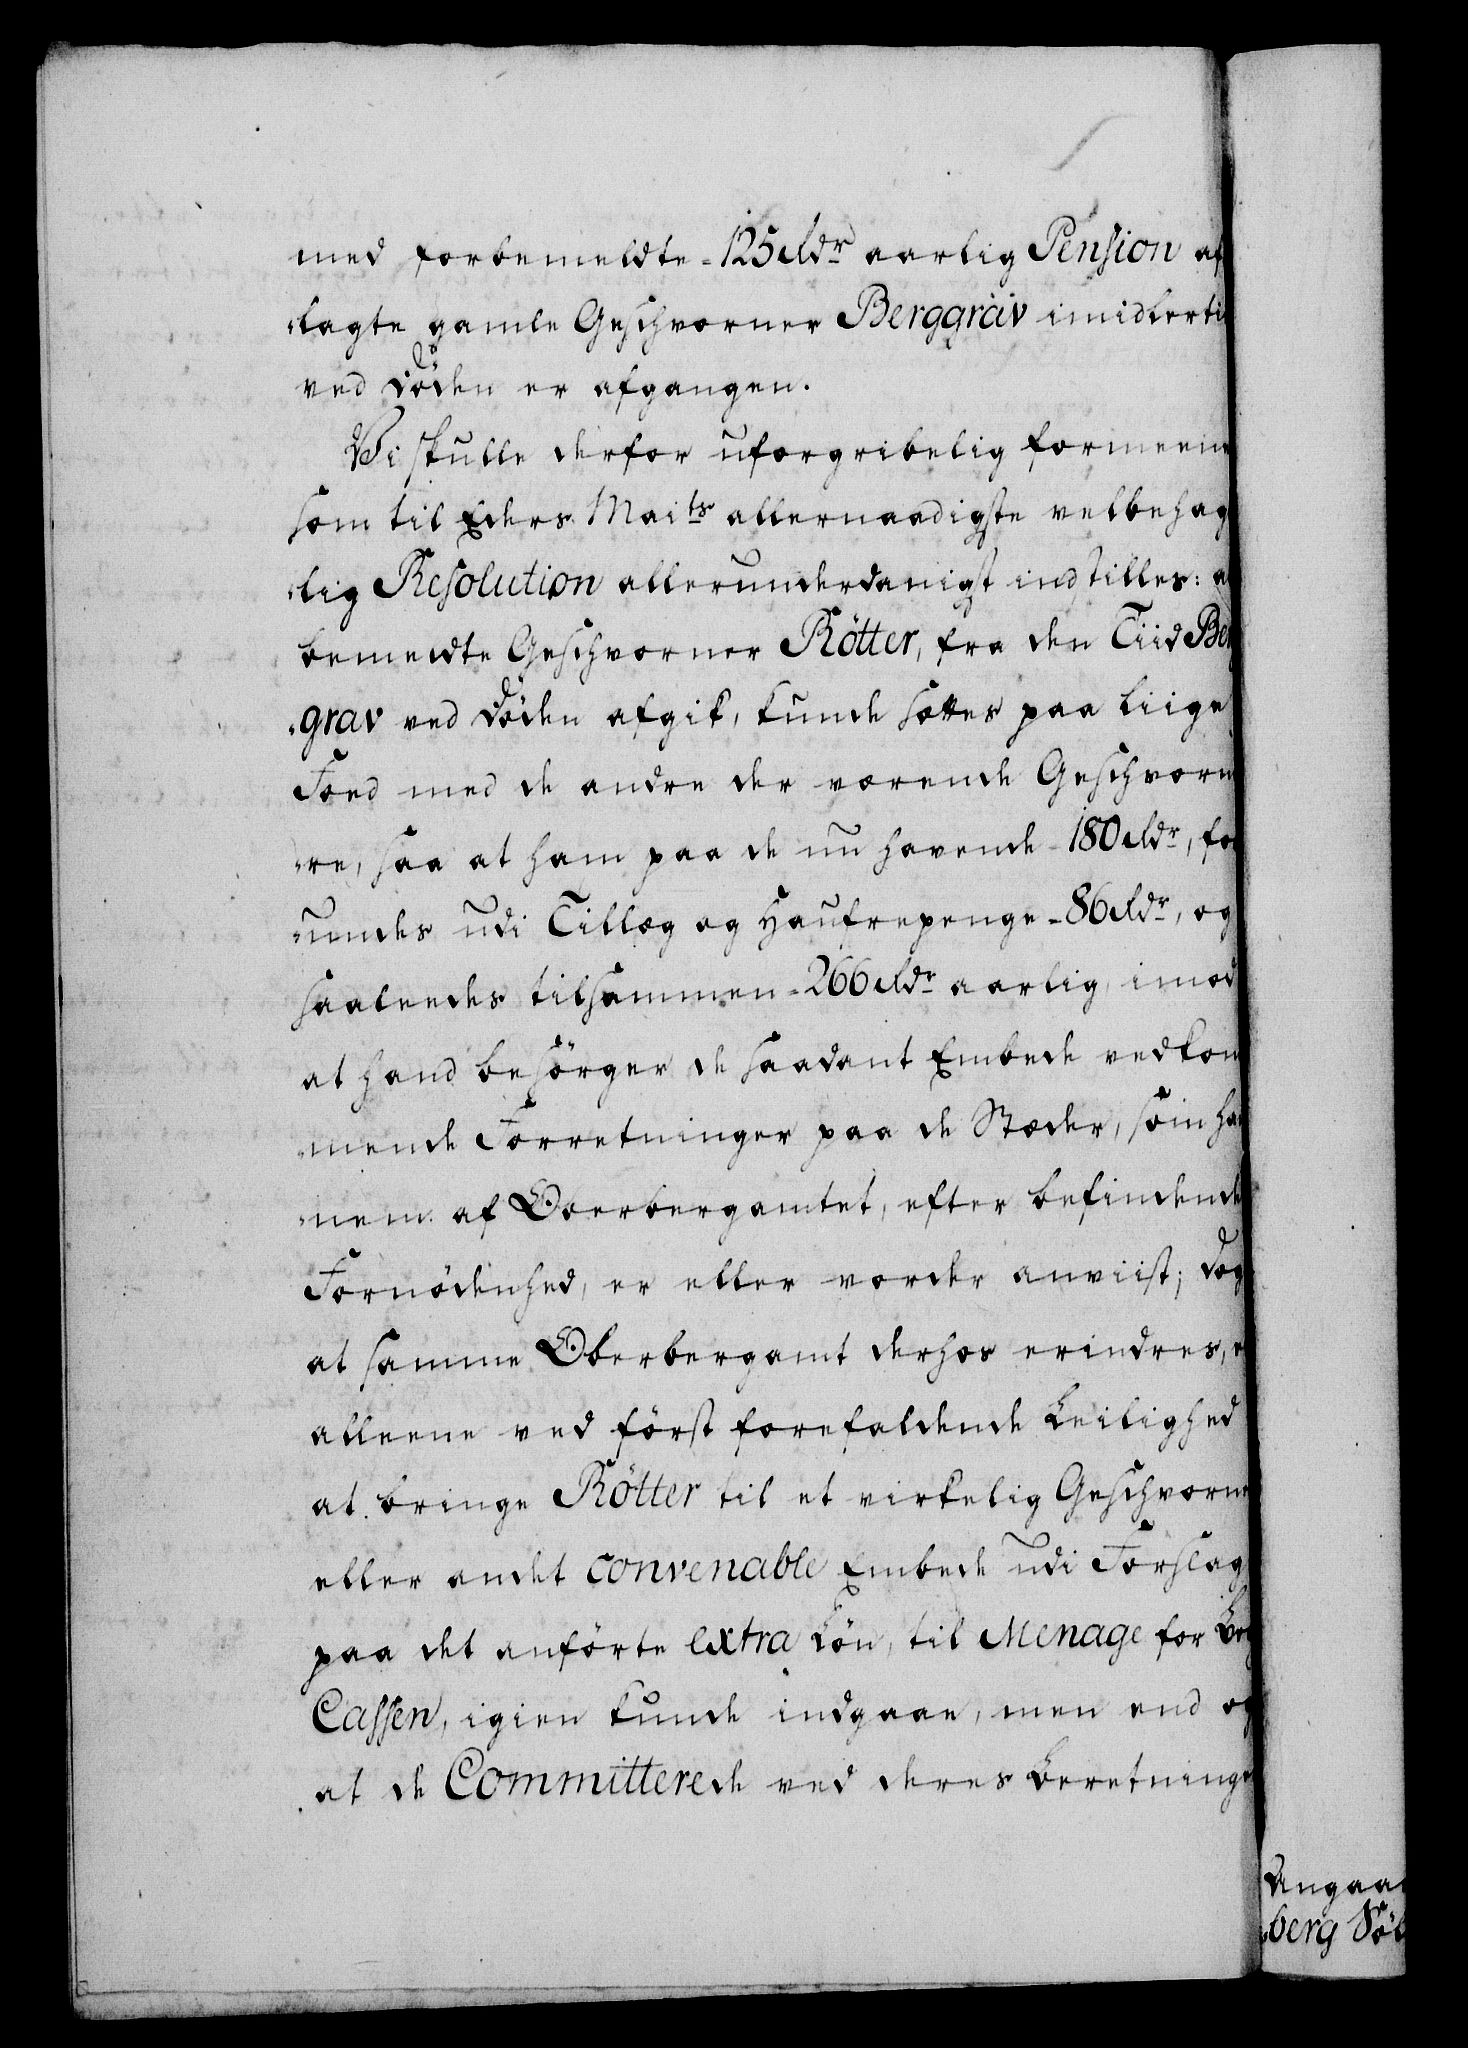 med forbemeldte - 125 Rdr aarlig Pension af
lagte gamle Geschvorner Berggrav imidlerti
ved Döden er afgangen.
Vi skulle derfor uforgribelig formeene
som til Eders Maits allernaadigste velbehag
lig Resolution allerunderdanigst indstilles: a
bemeldte Geschvorner Rötter, fra den Tiid Ber
grav ved Döden afgik, kunde sættes paa liige
Foed med de andre der værende Geschvorn
re, saa at ham paa de nu havende - 180 Rdr, for
undes udi Tillæg og Haufrepenge - 86 Rdr, og
saaleedes tilsammen - 266 Rdr aarlig, imod
at hand besörger de saadant Embede vedkom
mende Forretninger paa de Stæder, som ha
nem af Oberbergamtet, efter befindende
Fornödenhed, er eller vorder anviist; dog
at samme Oberbergamt derhos erindres, e
alleene ved först forefaldende Leilighed
at bringe Rötter til et virkelig Geschvorne
eller andet convenable Embede udi Forslag
paa det anförte extra Lön, til Menage for
Cassen, igien kunde indgaae, men end og
at de Committerede ved deres Beretninge
Angaa
berg Söl